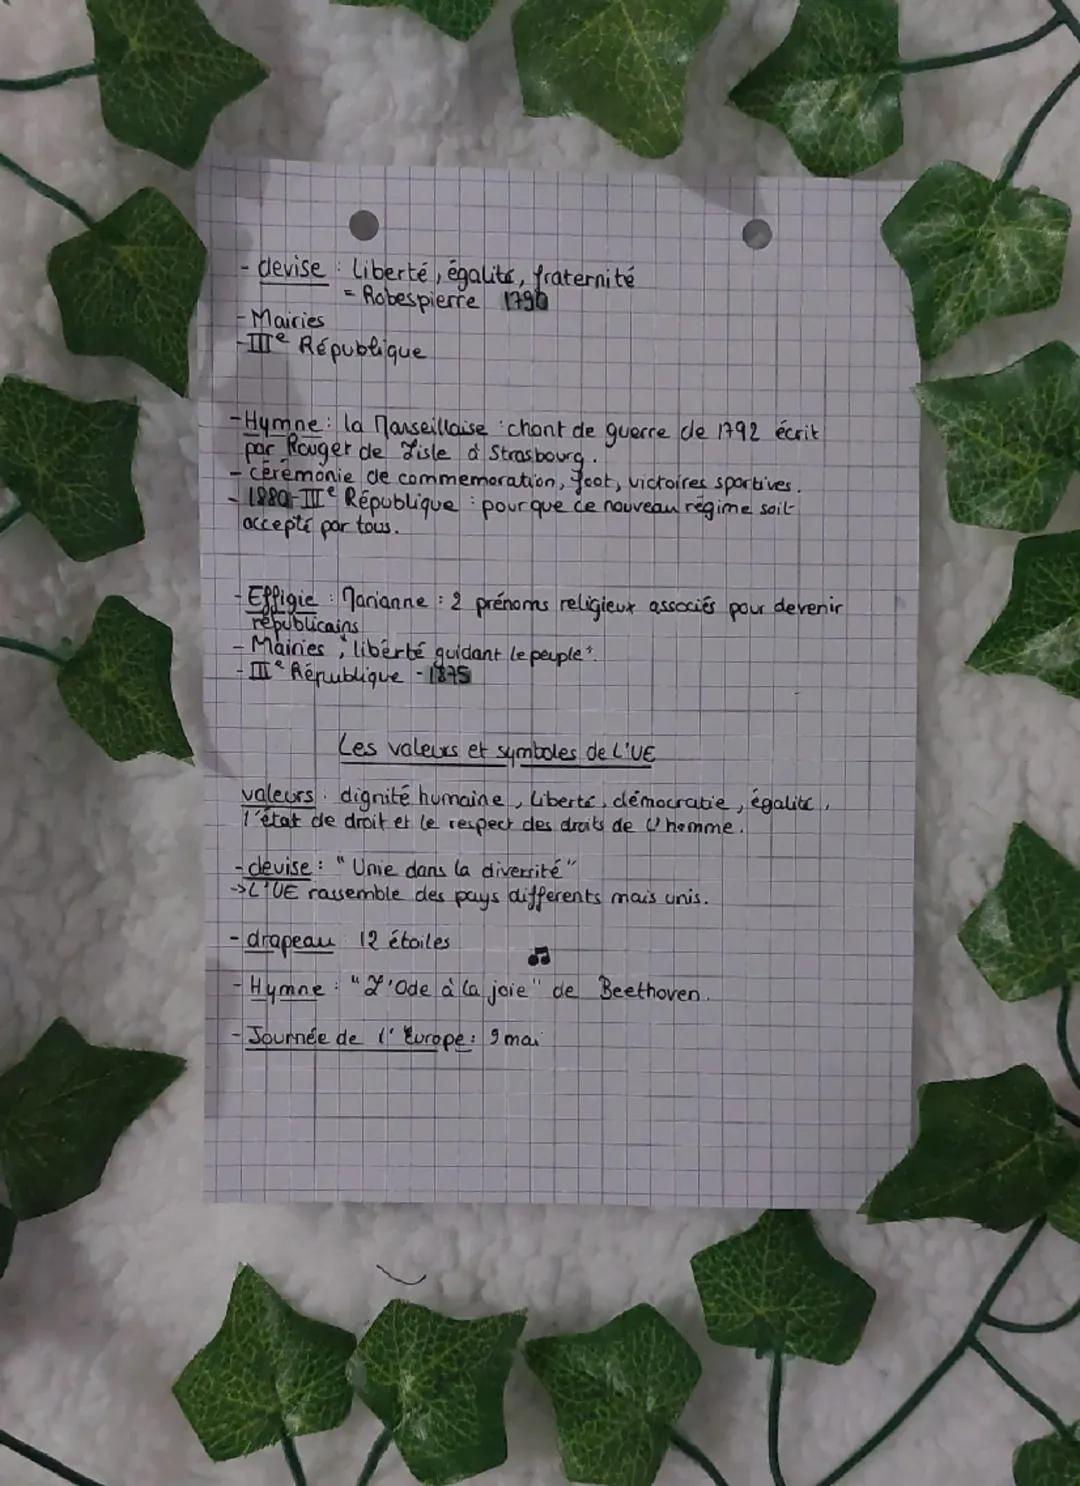 - devise : Liberté, égalité, fraternité
= Robespierre 1790
- Mairies
- IIIe République
- Hymne : la Marseillaise : chant de guerre de 1792 écrit
par Rouget de Lisle à Strasbourg.
- cérémonie de commemoration, foot, victoires sportives.
- 1880-IIIe République : pour que ce nouveau régime soit
accepté par tous.
- Effigie : Marianne : 2 prénoms religieux associés pour devenir
républicains
- Mairies, "liberté guidant le peuple".
- IIIe République - 1875
Les valeurs et symboles de l'UE
valeurs : dignité humaine, liberté, démocratie, égalité,
l'état de droit et le respect des droits de l'homme.
- devise : "Unie dans la diversité"
-> L'UE rassemble des pays différents mais unis.
- drapeau : 12 étoiles
- Hymne : "L'Ode à la joie" de Beethoven.
- Journée de l'Europe : 9 mai